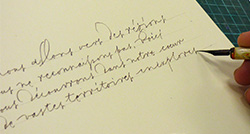 nous allons vers des régions
ne reconnaissons pas. Voici
nous découvrons dans notre cœur
de vastes territoires inexplorés